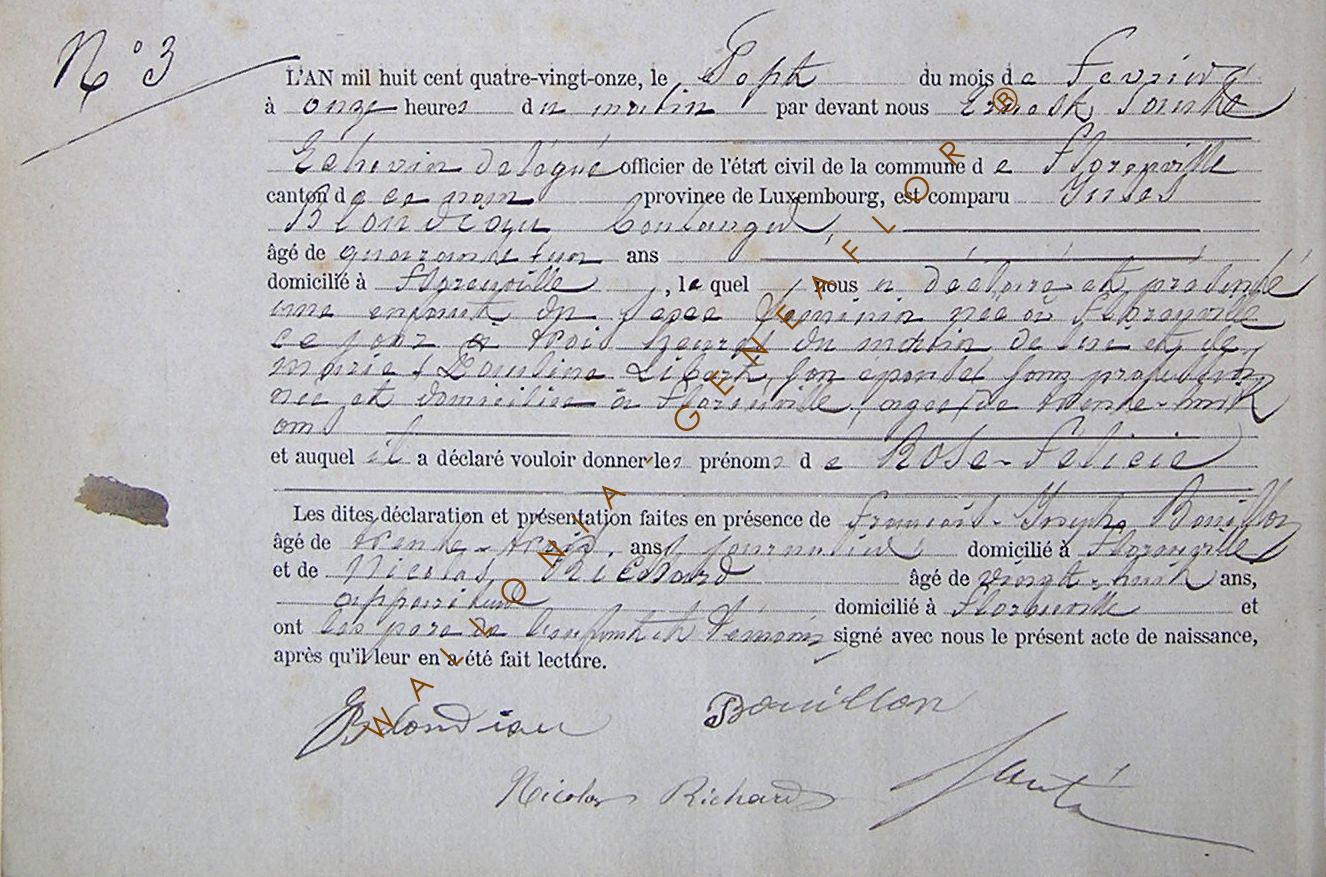 N° 3
L'AN mil huit cent quatre-vingt-onze, le Sept du mois de Fevrier
à onze heures du matin par devant nous Ernest
Echevin délégué officier de l'état civil de la commune de Florenville
canton de ce nom province de Luxembourg, est comparu
Blondieau Boulanger,
âgé de quarante et un ans
domicilié à Florenville, lequel nous a déclaré et présenté
une enfant du sexe féminin née à Florenville
ce jour à trois heures du matin de lui et de
Marie, Pauline Libert, son épouse sans profession
née et domiciliée à Florenville, agée de trente-huit
ans
et auquel il a déclaré vouloir donner les prénoms de Rose-Félicie
Les dites déclaration et présentation faites en présence de François-Joseph Bouillon
âgé de trente-trois ans, journalier domicilié à Florenville
et de Nicolas Richard âgé de vingt-huit ans,
appariteur domicilié à Florenville et
ont les père de l'enfant et témoins signé avec nous le présent acte de naissance,
après qu'il leur en a été fait lecture.
Blondieau Bouillon
Nicolas Richard
WALLONIA - GENEAFLOR ®